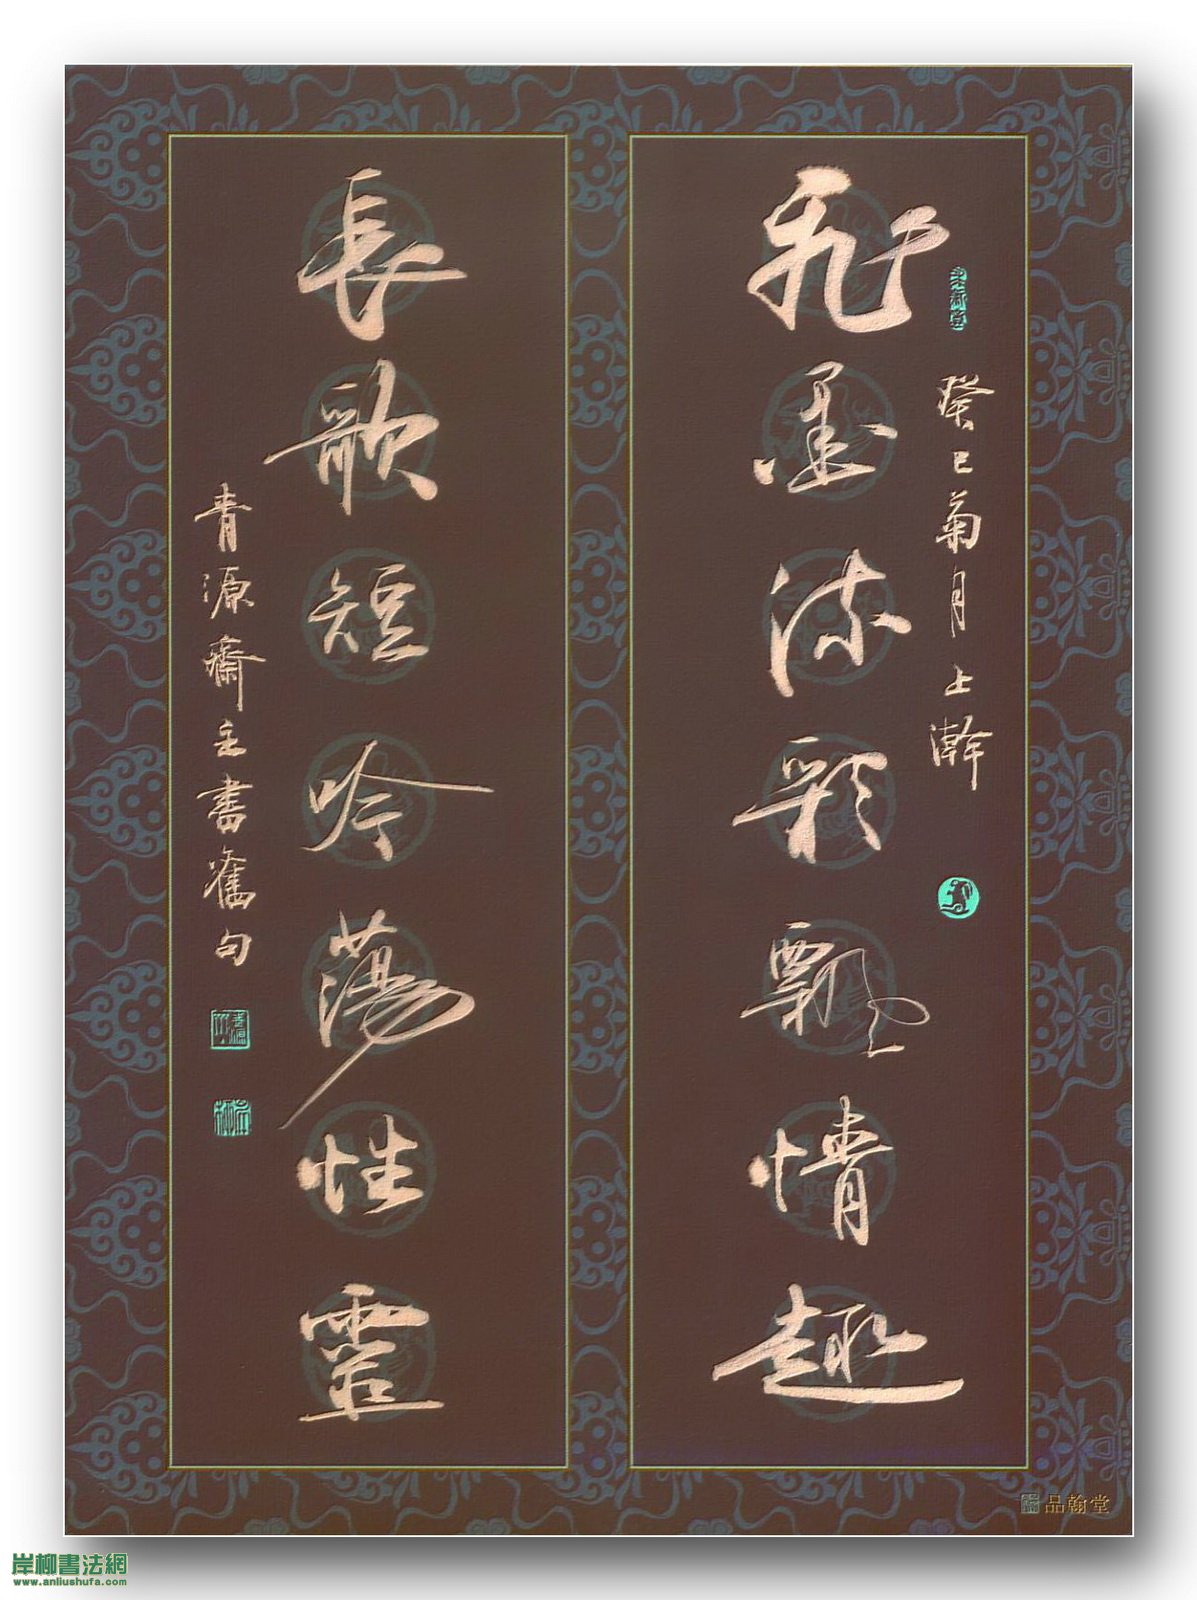 飛墨流彩飄情趣
癸巳菊月上澣
長歌短吟蕩性靈
青源齋主書舊句
品翰堂
岸柳書法網
www.anliushufa.com